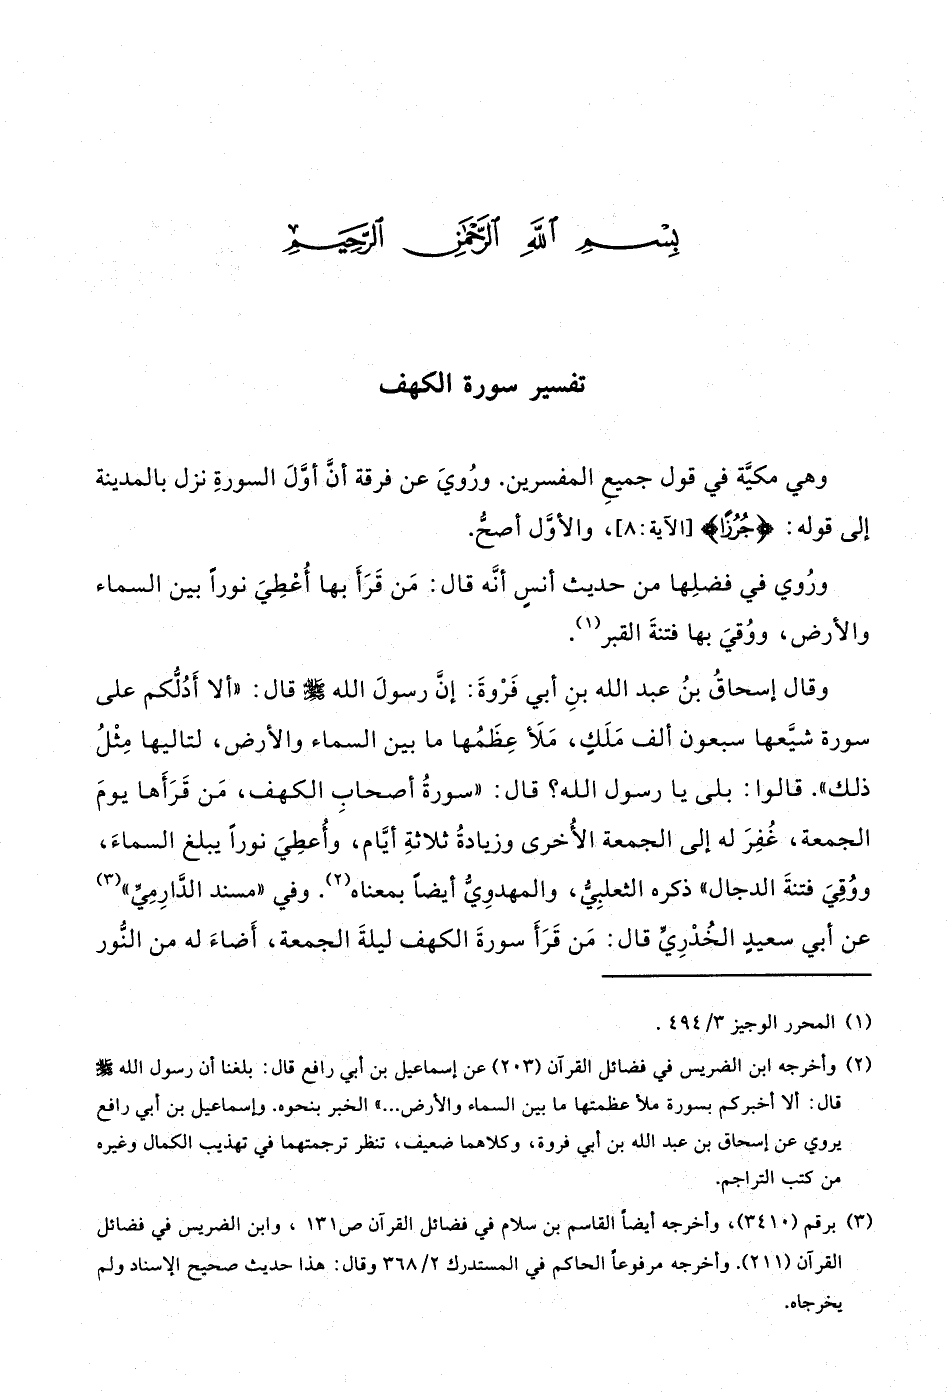 بِسْمِ ٱللَّهِ ٱلرَّحْمَٰنِ ٱلرَّحِيمِ
تفسير سورة الكهف
وهي مكيَّة في قول جميعِ المفسرين. ورُويَ عن فرقة أنَّ أوَّلَ السورةِ نزل بالمدينة
إلى قوله: ﴿جُرُزًا﴾ [الآية:٨]، والأوَّل أصحُّ.
ورُوي في فضلِها من حديث أنسٍ أنَّه قال: مَن قَرَأَ بها أُعْطِيَ نوراً بين السماء
والأرض، ووُقيَ بها فتنةَ القبر(١).
وقال إسحاقُ بنُ عبد الله بنِ أبي فَرْوةَ: إنَّ رسولَ الله ﷺ قال: «ألا أَدُلُّكم على
سورة شيَّعها سبعون ألف مَلَكٍ، مَلَأ عِظَمُها ما بين السماء والأرض، لتاليها مِثْلُ
ذلك». قالوا: بلى يا رسول الله؟ قال: «سورةُ أصحابِ الكهف، مَن قَرَأَها يومَ
الجمعة، غُفِرَ له إلى الجمعة الأُخرى وزيادةُ ثلاثةِ أيَّام، وأُعطِيَ نوراً يبلغ السماءَ،
ووُقِيَ فتنةَ الدجال» ذكره الثعلبِيُّ، والمهدوِيُّ أيضاً بمعناه(٢). وفي «مسند الدَّارِمِيِّ»(٣)
عن أبي سعيدٍ الخُدْرِيِّ قال: مَن قَرَأَ سورةَ الكهف ليلةَ الجمعة، أَضاءَ له من النُّور
(١) المحرر الوجيز ٣/ ٤٩٤ .
(٢) وأخرجه ابن الضريس في فضائل القرآن (٢٠٣) عن إسماعيل بن أبي رافع قال: بلغنا أن رسول الله ﷺ
قال: ألا أخبركم بسورة ملأ عظمتها ما بين السماء والأرض...» الخبر بنحوه. وإسماعيل بن أبي رافع
يروي عن إسحاق بن عبد الله بن أبي فروة، وكلاهما ضعيف، تنظر ترجمتهما في تهذيب الكمال وغيره
من كتب التراجم.
(٣) برقم (٣٤١٠)، وأخرجه أيضاً القاسم بن سلام في فضائل القرآن ص١٣١ ، وابن الضريس في فضائل
القرآن (٢١١). وأخرجه مرفوعاً الحاكم في المستدرك ٢/ ٣٦٨ وقال: هذا حديث صحيح الإسناد ولم
يخرجاه.